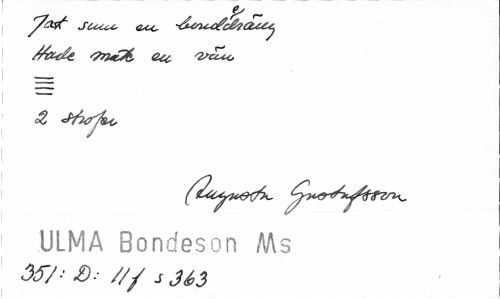 Jat sum en bonddräng
e
Hade mäk en vän
2 strofer
Augusta Gustafsson
ULMA Bondeson Ms
351: D: 11 f s 363